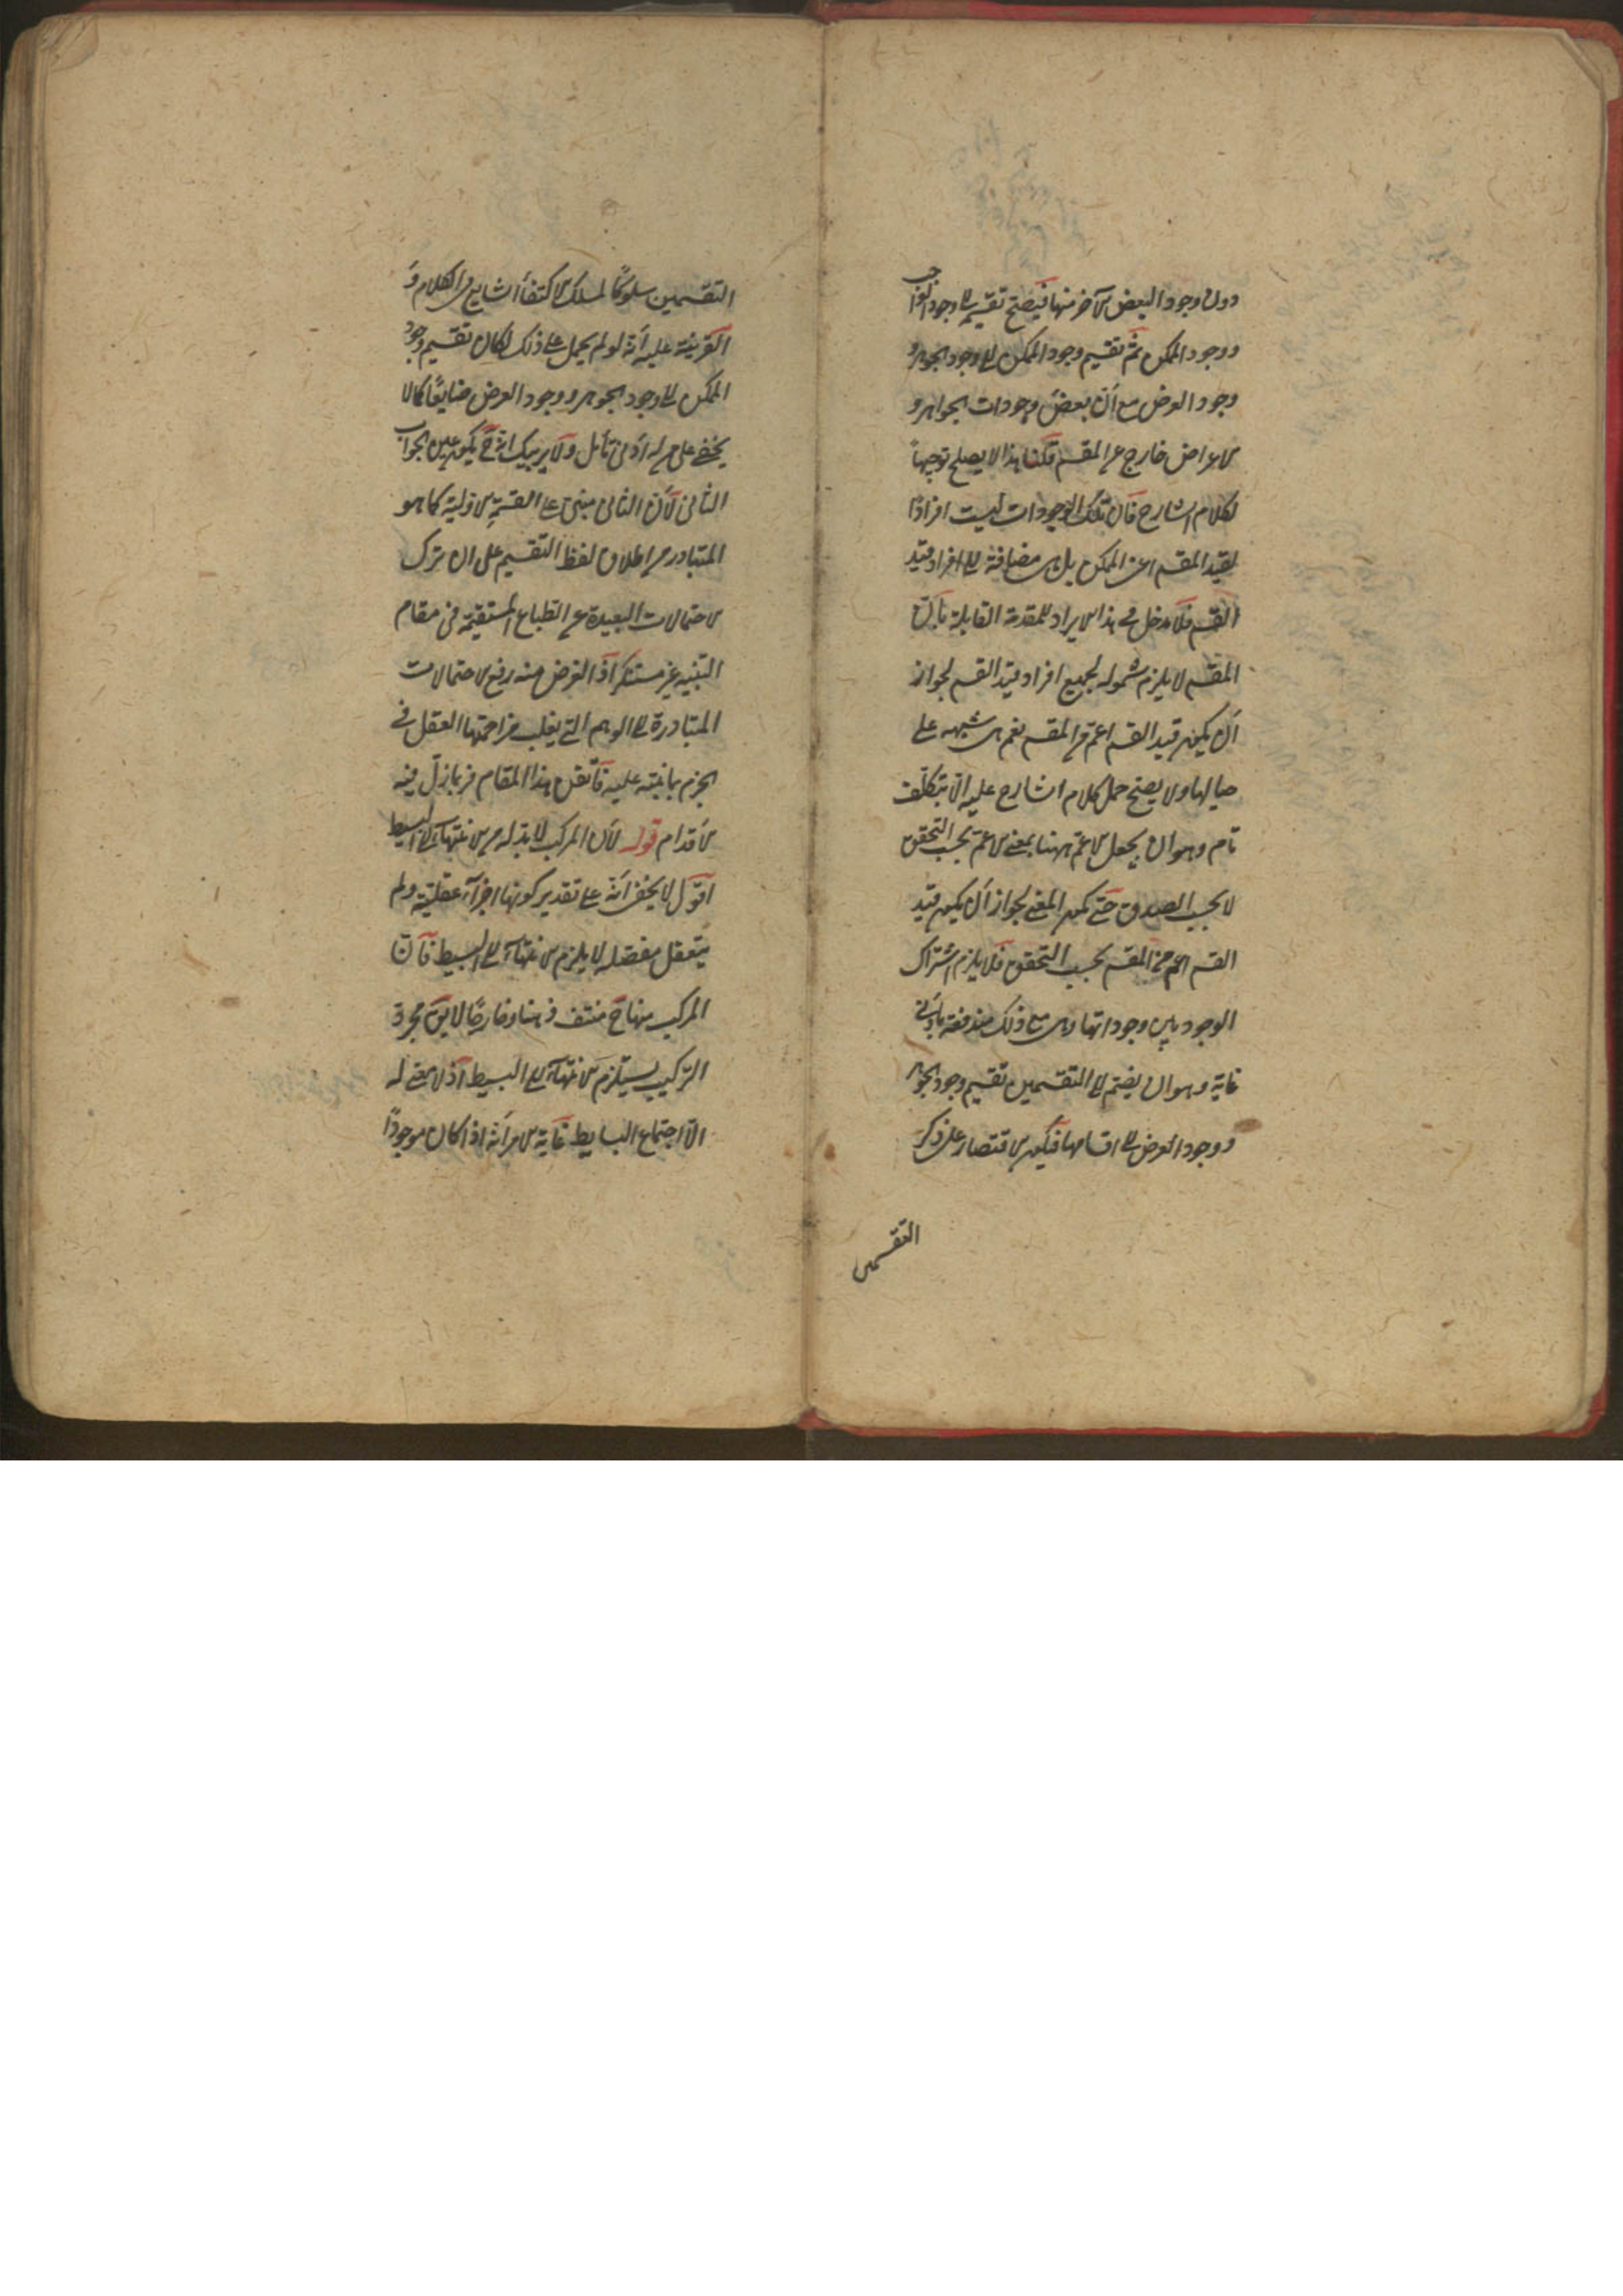 دون وجود البعض الآخر منها فيصح تقسيمه الى وجود الواجب
ووجود الممكن ثم تقسيم وجود الممكن الى وجود الجوهر و
وجود العرض مع أن بعض وجودات الجواهر و
الاعراض خارج عن المقسم قلنا هذا لا يصلح توجيهاً
لكلام الشارح فان تلك الوجودات ليست افرادًا
لقيد المقسم اعنى الممكن بل هى مضافة الى افراد قيد
القسم فلا مدخل فى هذا الايراد للمقدمة القايلة بان
المقسم لا يلزم شموله لجميع افراد قيد القسم لجواز
أن يكون قيد القسم اعم من المقسم نعم هى شبهه على
حيالها ولا يصح حمل كلام الشارح عليه الا بتكلف
تام وهو ان يجعل الاعم ههنا بمعنى الاعم بحسب التحقق
لا بحسب الصدق حتى يكون المعنى لجواز أن يكون قيد
القسم اعم من المقسم بحسب التحقق فلا يلزم اشتراك
الوجود بين وجوداتها وهى مع ذلك مندفعة بأدنى
غاية وهو ان يضم الى التقسمين تقسيم وجود الجوهر
ووجود العرض الى اقسامها فيكون الاقتصار على ذكر
التقسمين
التقسمين سلوكًا لمسلك الاكتفأ الشايع فى الكلام و
القرينة عليه أنه لو لم يحمل على ذلك لكان تقسيم وجود
الممكن الى وجود الجوهر ووجود العرض ضايعًا كما لا
يخفى على من له أدنى تأمل ولا يريبك انه ح يكون عين الجواب
الثانى لأن الثانى مبنى على القسمة الاولية كما هو
المتبادر من اطلاق لفظ التقسيم على ان ترك
الاحتمالات البعيدة عن الطباع المستقيمة فى مقام
التنبيه غير مستنكر اذ الغرض منه رفع الاحتمالات
المتبادرة الى الوهم التى يغلب مزاحمتها العقل فى
الجزم بما نبه عليه فأتقن هذا المقام فربما زل فيه
الأقدام قوله لأن المركب لا بد له من الانتهاء الى البسيط
اقول لا يخفى أنه على تقدير كونها اجزآء عقلية ولم
يتعقل مفصله لا يلزم الانتهآء الى البسيط فان
المركب منها ح منتف ذهنا وخارجًا لا يق مجرد
التركيب يستلزم الانتهآء الى البسيط اذ لا معنى له
الا اجتماع البسايط غاية الامر أنه اذا كان موجودًا